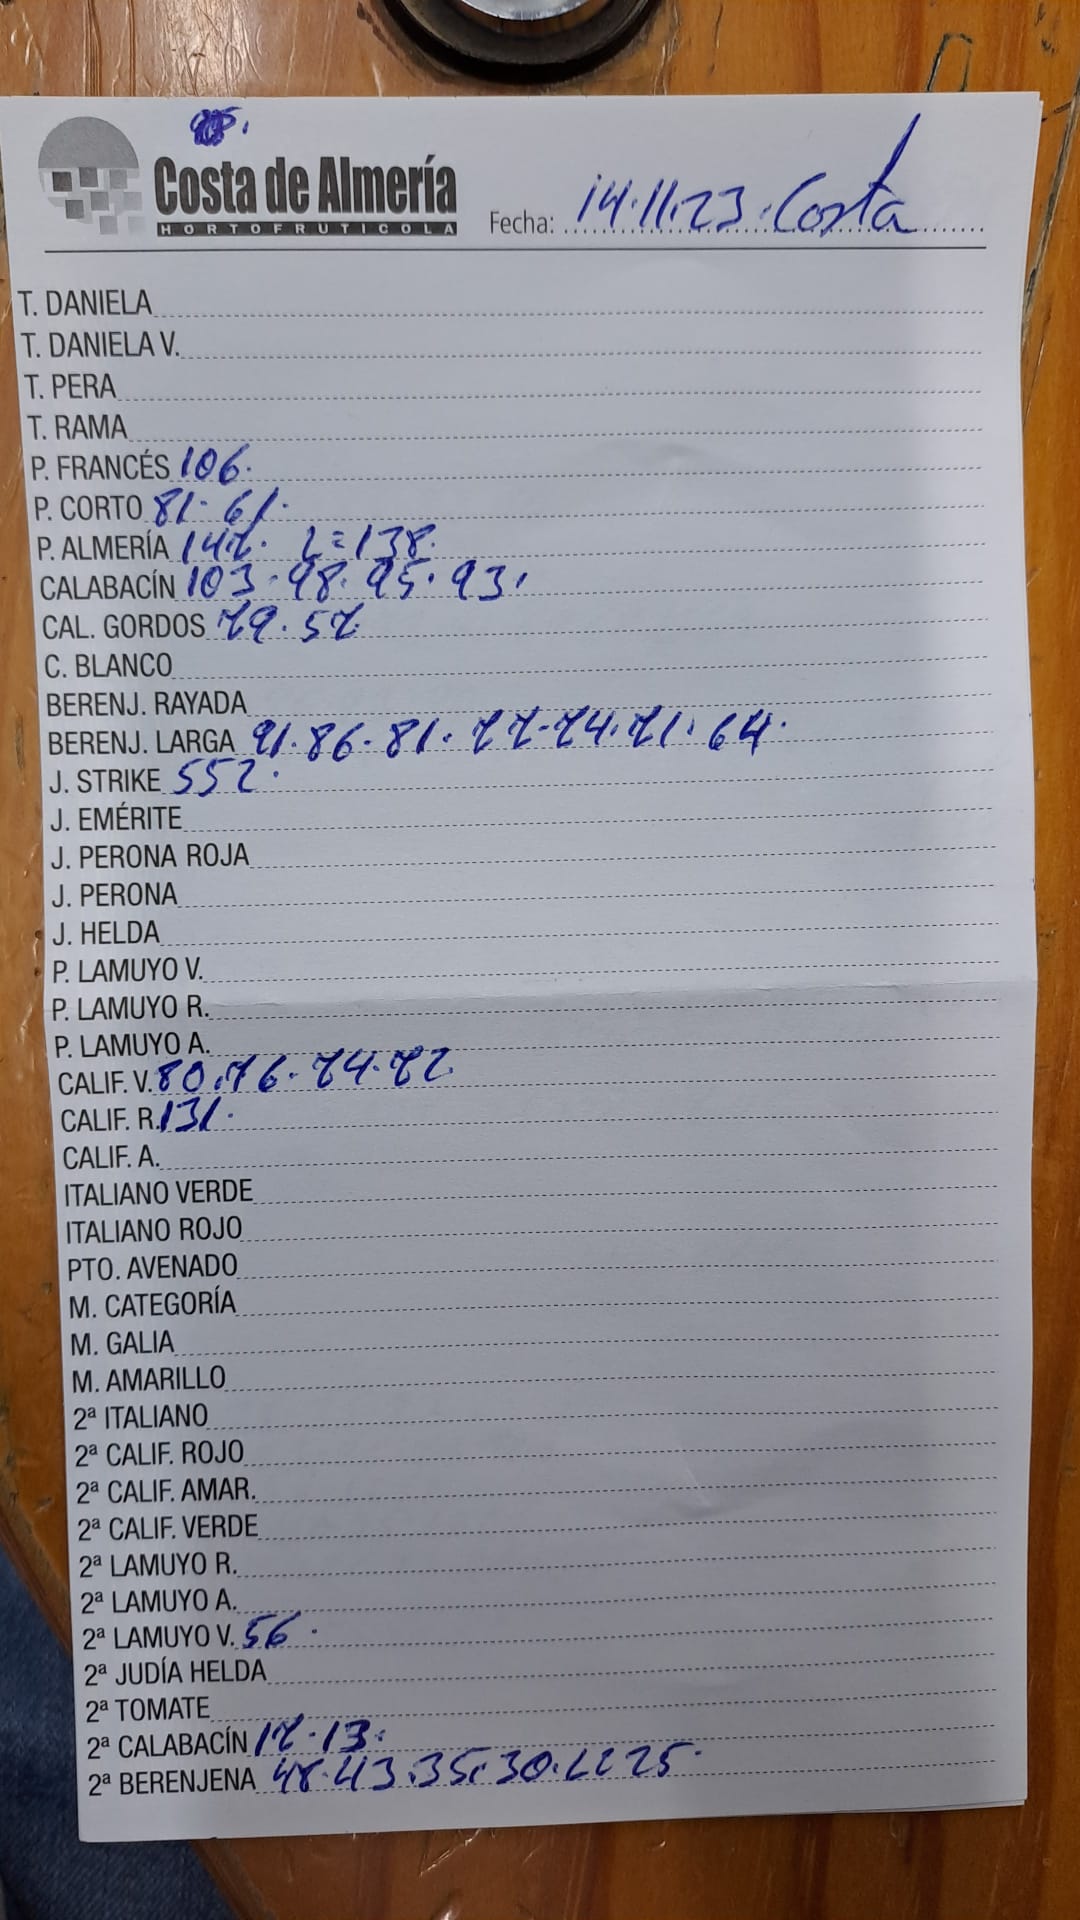 Costa de Almería
HORTOFRUTICOLA
Fecha: 14.11.23. Costa
T. DANIELA
T. DANIELA V.
T. PERA
T. RAMA
P. FRANCÉS 106.
P. CORTO 81. 61.
P. ALMERÍA 147. L=138.
CALABACÍN 103. 98. 95. 93.
CAL. GORDOS 79. 57.
C. BLANCO
BERENJ. RAYADA
BERENJ. LARGA 91. 86. 81. 77. 74. 71. 64.
J. STRIKE 552.
J. EMÉRITE
J. PERONA ROJA
J. PERONA
J. HELDA
P. LAMUYO V.
P. LAMUYO R.
P. LAMUYO A.
CALIF. V. 80. 76. 74. 72.
CALIF. R. 131.
CALIF. A.
ITALIANO VERDE
ITALIANO ROJO
PTO. AVENADO
M. CATEGORÍA
M. GALIA
M. AMARILLO
2ª ITALIANO
2ª CALIF. ROJO
2ª CALIF. AMAR.
2ª CALIF. VERDE
2ª LAMUYO R.
2ª LAMUYO A.
2ª LAMUYO V. 56.
2ª JUDÍA HELDA
2ª TOMATE
2ª CALABACÍN 17. 13.
2ª BERENJENA 48. 43. 35. 30. 25.